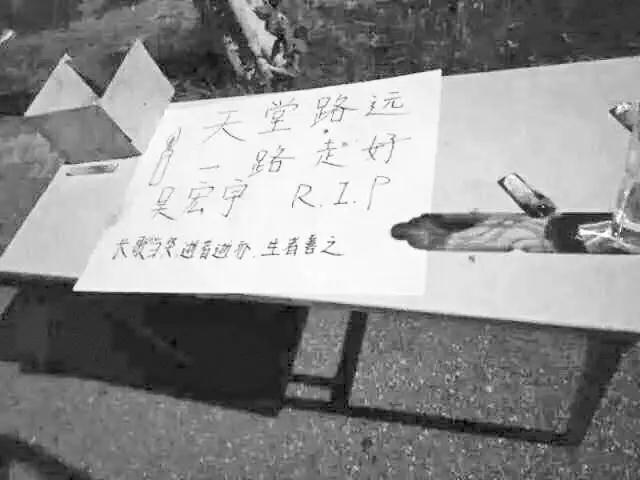 天堂路远
一路走好
吴宏宇 R.I.P
长歌当哭,逝者逝亦.生者善之